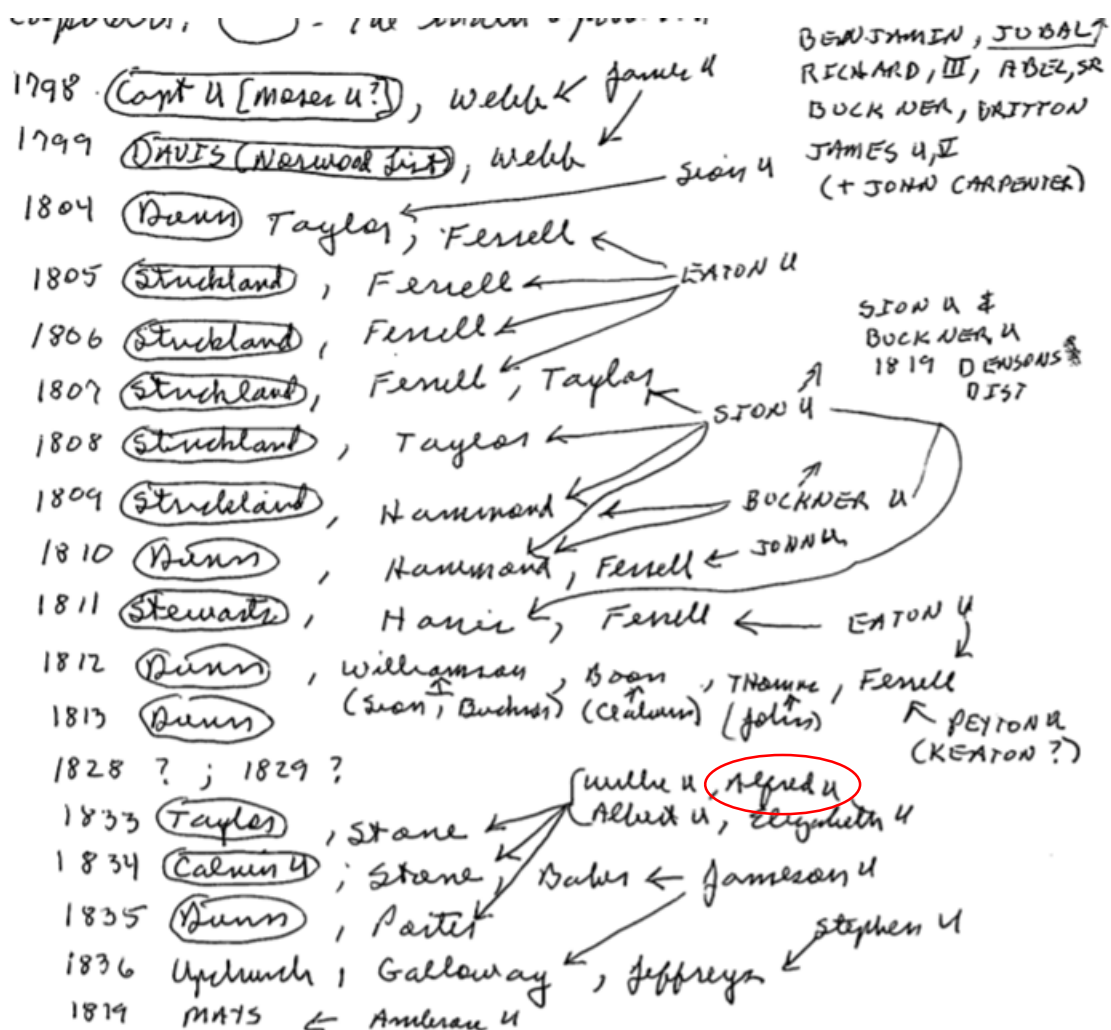 BENJAMIN, JUBAL
RICHARD, III, ABEL, SR
BUCKNER, BRITTON
JAMES U, V
(+ JOHN CARPENTER)
1798 Capt U [Moses U?], Webb James U
1799 DAVIS (Norwood List), Webb
1804 Dunn Taylor, Ferrell Sion U
1805 Strickland, Ferrell EATON U
1806 Strickland, Ferrell
1807 Strickland, Ferrell, Taylor
SION U &
BUCKNER U
1819 DENSONS
DIST
1808 Strickland, Taylor SION U
1809 Strickland, Hammond BUCKNER U
1810 Dunn, Hammond, Ferrell JOHN U
1811 Stewarts, Harris, Ferrell EATON U
1812 Dunn, Williamson, Boon, Thomas, Ferrell
(Sion, Buckner) (Calvin) (John) PEYTON U
1813 Dunn (KEATON ?)
1828 ? ; 1829 ?
Willie U, Alfred U
Albert U, Elizabeth U
1833 Taylor, Stone
1834 Calvin U; Stone, Baker Jameson U
1835 Dunn, Porter
1836 Upchurch, Galloway, Jeffreys Stephen U
1879 MAYS Ambrose U